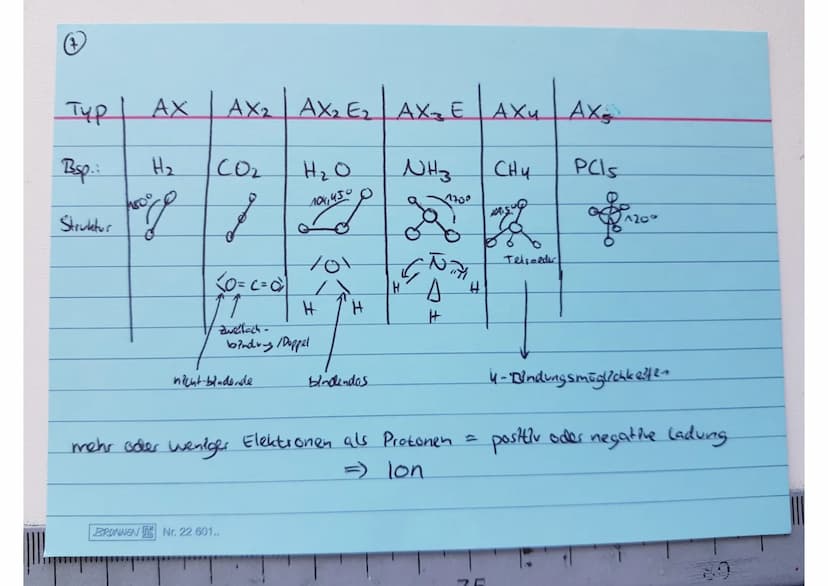 1
Typ AX AX2 AX2E2 AX3E AX4 AX5
Bsp.: H2 CO2 H2O NH3 CH4 PCl5
Struktur 180° 104,45° 120°
Tetraeder
⟨O=C=O⟩ /O\ N
H H H H
H
zweifach-
bindung/Doppel
nicht-bindende bindendes 4-Bindungsmöglichkeiten
mehr oder weniger Elektronen als Protonen = positiv oder negative Ladung
=> Ion
BRUNNEN Nr. 22 601..